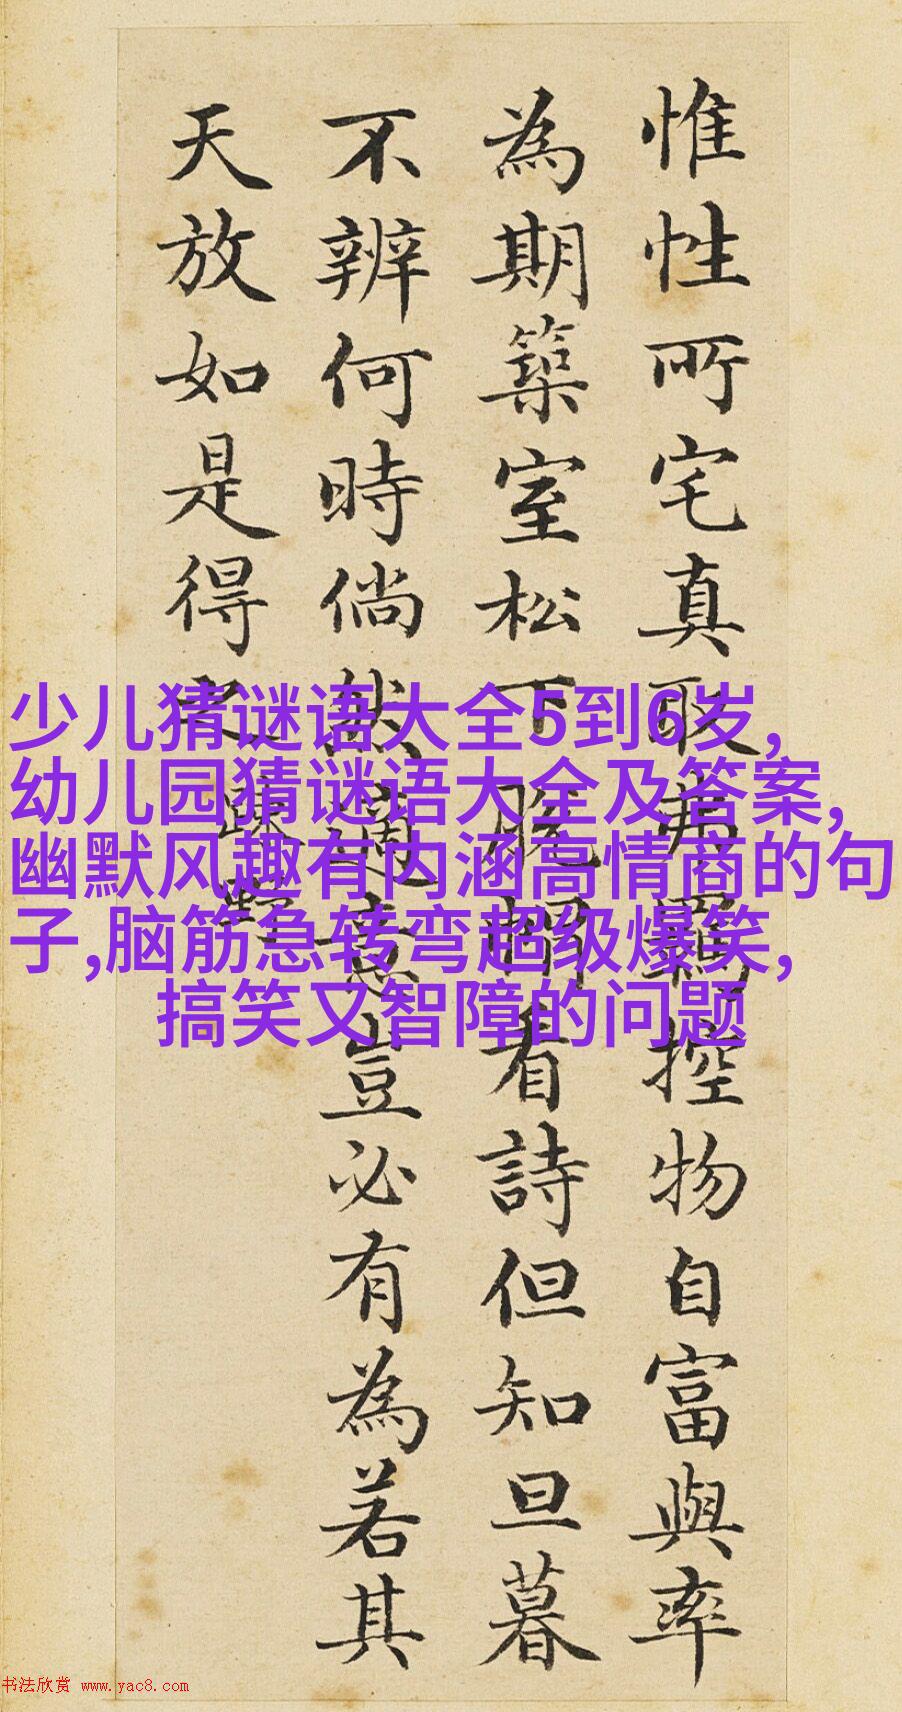 惟性所宅真取弗羈控物自富與率
為期築室松下脫帽看詩但知旦暮
不辨何時倘然適意豈必有為若其
天放如是得之
疎野
少儿猜谜语大全5到6岁,
幼儿园猜谜语大全及答案,
幽默风趣有内涵高情商的句
子,脑筋急转弯超级爆笑,
搞笑又智障的问题
书法欣赏 www.yac8.com